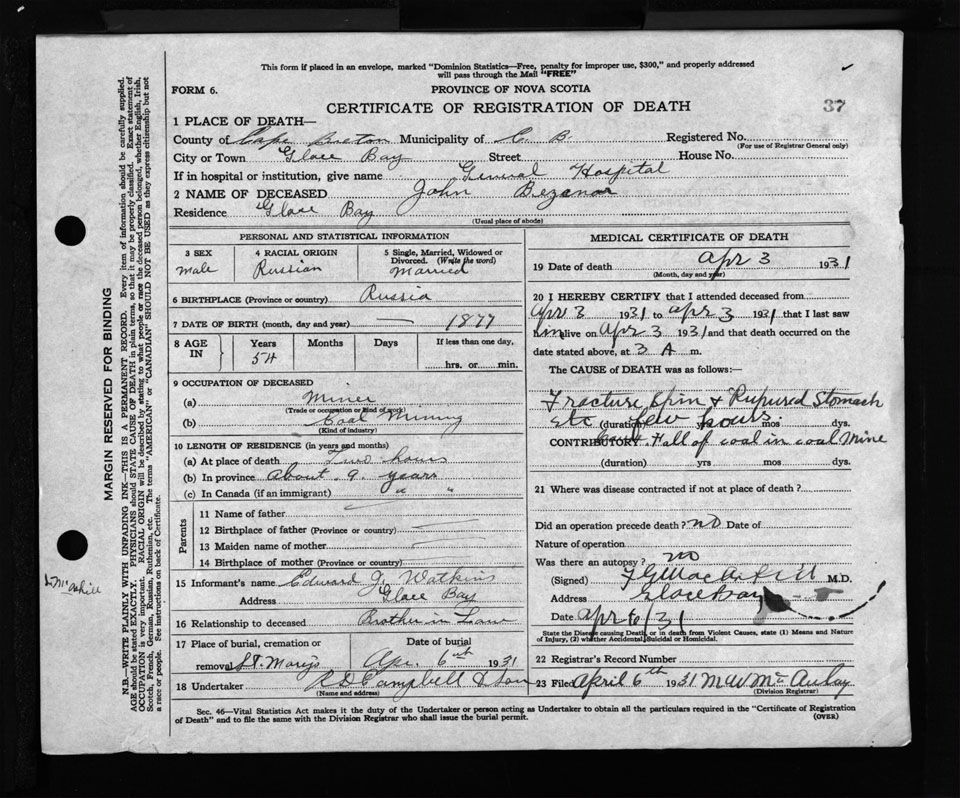 This form if placed in an envelope, marked "Dominion Statistics—Free, penalty for improper use, $300," and properly addressed
will pass through the Mail "FREE"
FORM 6.
PROVINCE OF NOVA SCOTIA
37
CERTIFICATE OF REGISTRATION OF DEATH
1 PLACE OF DEATH—
County of Cape Breton Municipality of C. B. Registered No.
(For use of Registrar General only)
City or Town Glace Bay Street House No.
If in hospital or institution, give name General Hospital
2 NAME OF DECEASED John Bezanor
Residence Glace Bay
(Usual place of abode)
PERSONAL AND STATISTICAL INFORMATION
3 SEX 4 RACIAL ORIGIN 5 Single, Married, Widowed or
Divorced. (Write the word)
male Russian Married
6 BIRTHPLACE (Province or country) Russia
7 DATE OF BIRTH (month, day and year) — 1877
8 AGE IN Years Months Days If less than one day,
54 hrs. or min.
9 OCCUPATION OF DECEASED
(a) Miner
(Trade or occupation or kind of work)
(b) Coal Mining
(Kind of industry)
10 LENGTH OF RESIDENCE (in years and months)
(a) At place of death Two hours
(b) In province About 9 years
(c) In Canada (if an immigrant) " "
Parents
11 Name of father
12 Birthplace of father (Province or country)
13 Maiden name of mother
14 Birthplace of mother (Province or country)
15 Informant's name Edward J. Watkins
Address Glace Bay
16 Relationship to deceased Brother in Law
17 Place of burial, cremation or Date of burial
removal St. Marys Apr. 6th 1931
18 Undertaker R D Campbell & Son
(Name and address)
MEDICAL CERTIFICATE OF DEATH
19 Date of death Apr 3 1931
(Month, day and year)
20 I HEREBY CERTIFY that I attended deceased from
Apr 3 1931 to Apr 3 1931 that I last saw
him alive on Apr 3 1931 and that death occurred on
date stated above, at 3 A m.
The CAUSE of DEATH was as follows:—
Fracture Spin & Rupured Stomach
Etc (duration) few hours. mos dys.
CONTRIBUTORY. Fall of coal in coal Mine
(duration) yrs mos dys.
21 Where was disease contracted if not at place of death?
Did an operation precede death? no Date of
Nature of operation
Was there an autopsy? no
(Signed) M.D.
Address Glace Bay
Date Apr 6/31
State the Disease causing Death, or in death from Violent Causes, state (1) Means and Nature
of Injury, (2) whether Accidental, Suicidal or Homicidal.
22 Registrar's Record Number
23 Filed April 6th 1931 M W McAulay
(Division Registrar)
Sec. 46—Vital Statistics Act makes it the duty of the Undertaker or person acting as Undertaker to obtain all the particulars required in the "Certificate of Registration
of Death" and to file the same with the Division Registrar who shall issue the burial permit. (OVER)
MARGIN RESERVED FOR BINDING
N.B.—WRITE PLAINLY WITH UNFADING INK—THIS IS A PERMANENT RECORD. Every item of information should be carefully supplied.
AGE should be stated EXACTLY. PHYSICIANS should STATE CAUSE OF DEATH in plain terms, so that it may be properly classified. Exact statement of
OCCUPATION is very important. RACIAL ORIGIN will be described by stating to what people or race the deceased person belonged, whether English, Irish,
Scotch, French, German, Russian, Ruthenian, etc. The terms "AMERICAN" or "CANADIAN" SHOULD NOT BE USED as they express citizenship but not
a race or people. See instructions on back of Certificate.